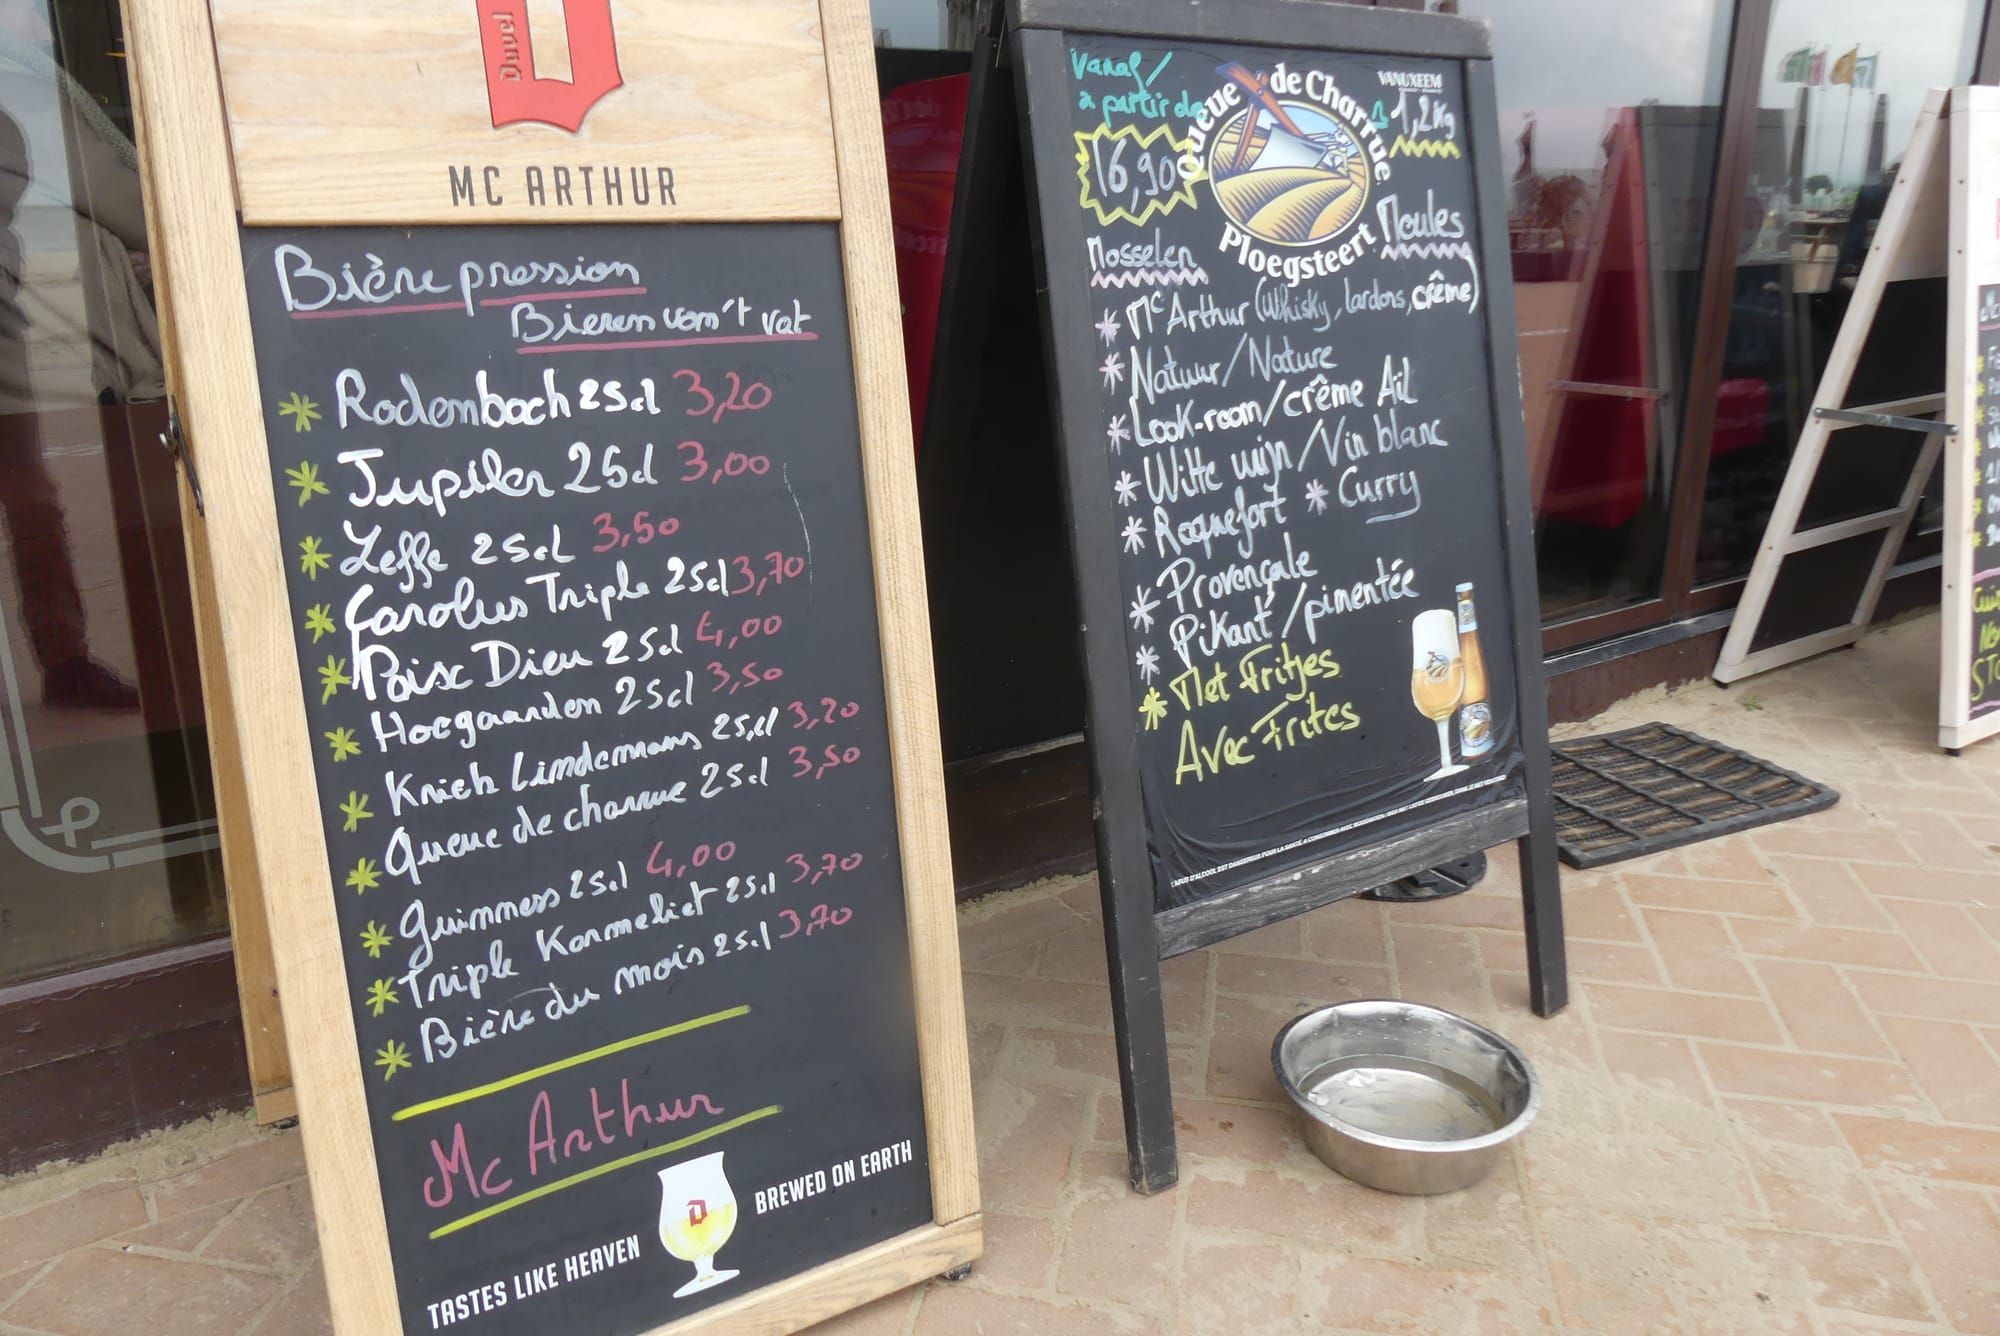 Duvel
MC ARTHUR
Bière pression
Bieren van't vat
* Rodenbach 25cl 3,20
* Jupiler 25cl 3,00
* Leffe 25cl 3,50
* Carolus Triple 25cl 3,70
* Paix Dieu 25cl 4,00
* Hoegaarden 25cl 3,50
* Kriek Lindemans 25cl 3,20
* Queue de charrue 25cl 3,50
* Guinness 25cl 4,00
* Triple Karmeliet 25cl 3,70
* Bière du mois 25cl 3,70
Mc Arthur
TASTES LIKE HEAVEN
BREWED ON EARTH
Vanaf/
à partir de
16,90
Queue de Charrue
Ploegsteert
VANUXEEM
1,2kg
Mosselen
Moules
* Mc Arthur (Whisky, lardons, crême)
* Natuur/Nature
* Look-room/crême Ail
* Witte wijn/Vin blanc
* Roquefort * Curry
* Provençale
* Pikant/pimentée
* Met Fritjes
Avec Frites
L'ABUS D'ALCOOL EST DANGEREUX POUR LA SANTÉ, A CONSOMMER AVEC MODÉRATION